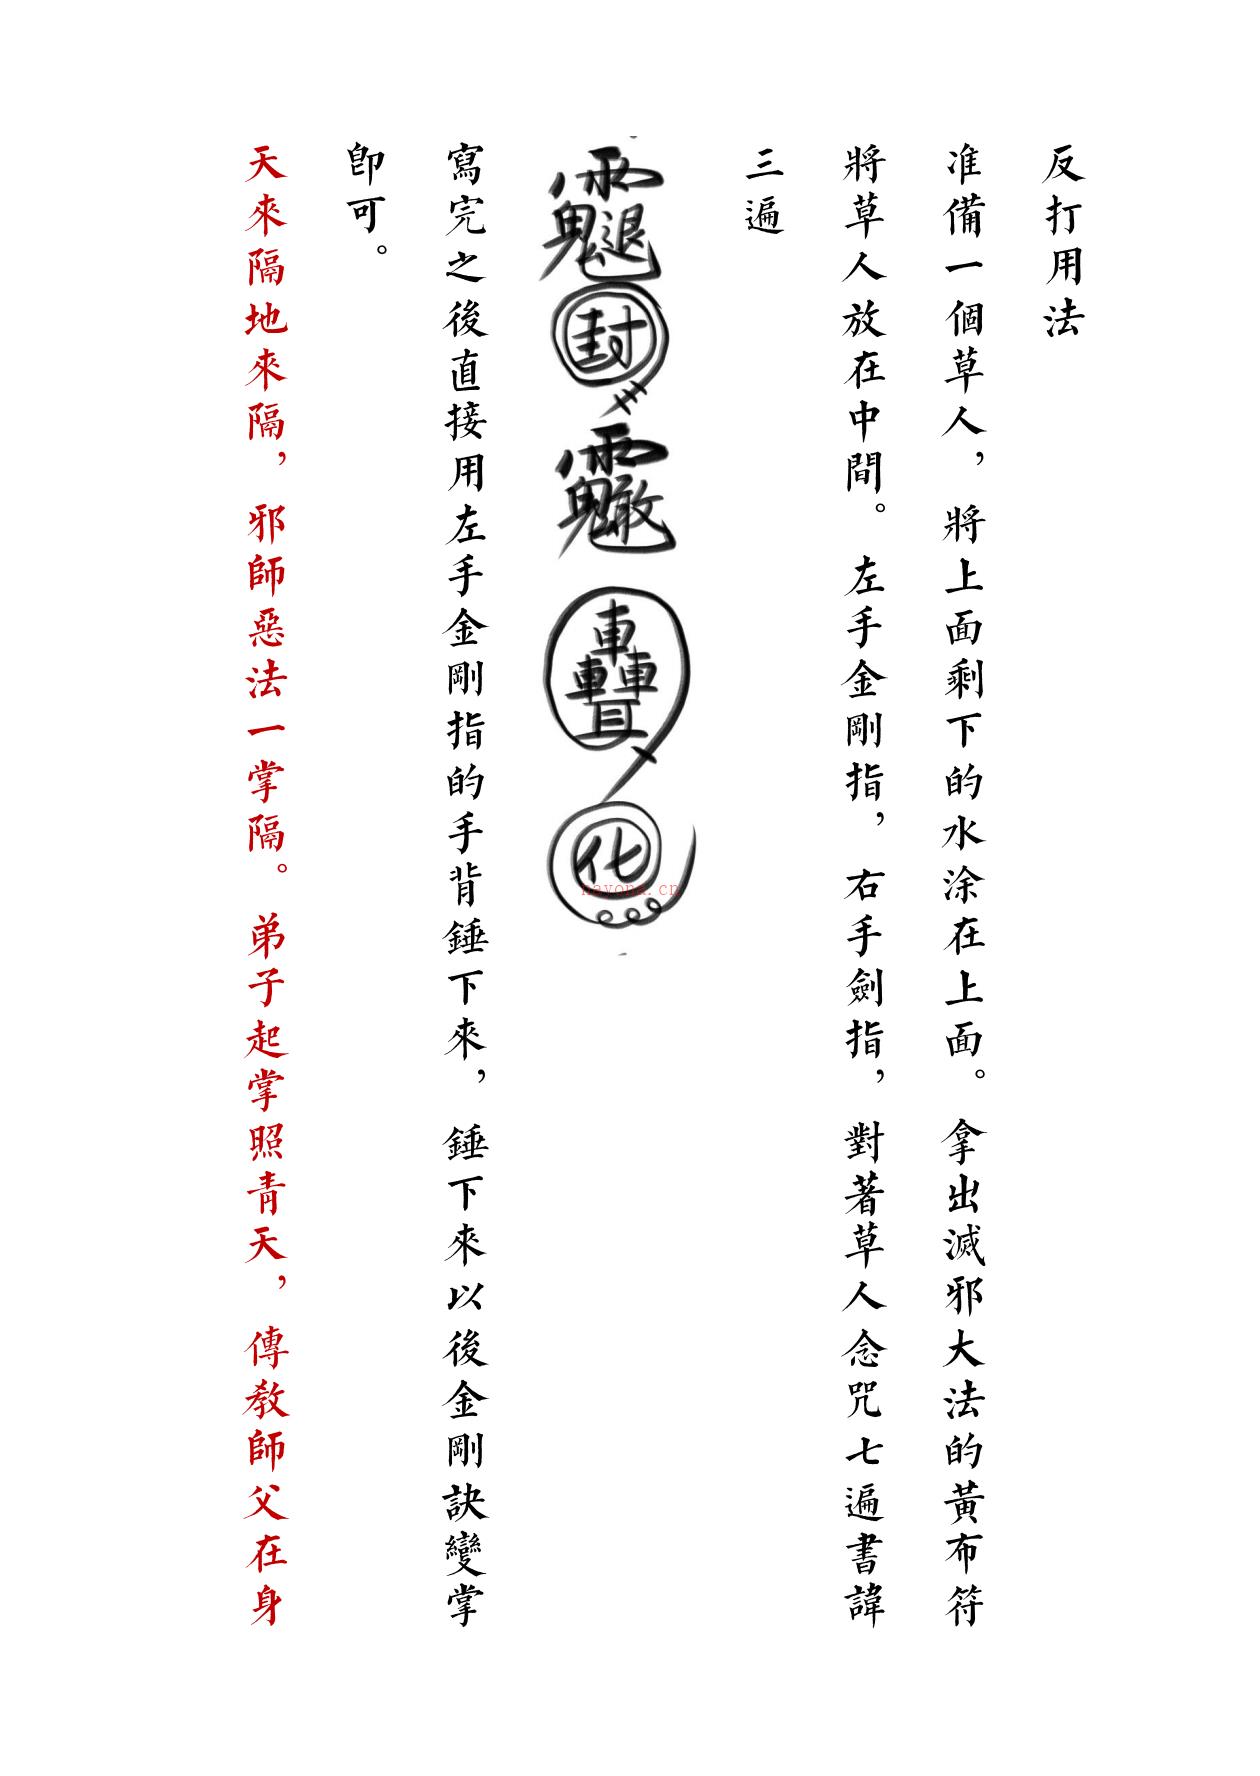 反打用法
准備一個草人，將上面剩下的水涂在上面。拿出滅邪大法的黃布符
將草人放在中間。左手金剛指，右手劍指，對著草人念咒七遍書諱
三遍
封
化
nayona.cn
寫完之後直接用左手金剛指的手背錘下來，錘下來以後金剛訣變掌
即可。
天來隔地來隔，邪師惡法一掌隔。弟子起掌照青天，傳教師父在身